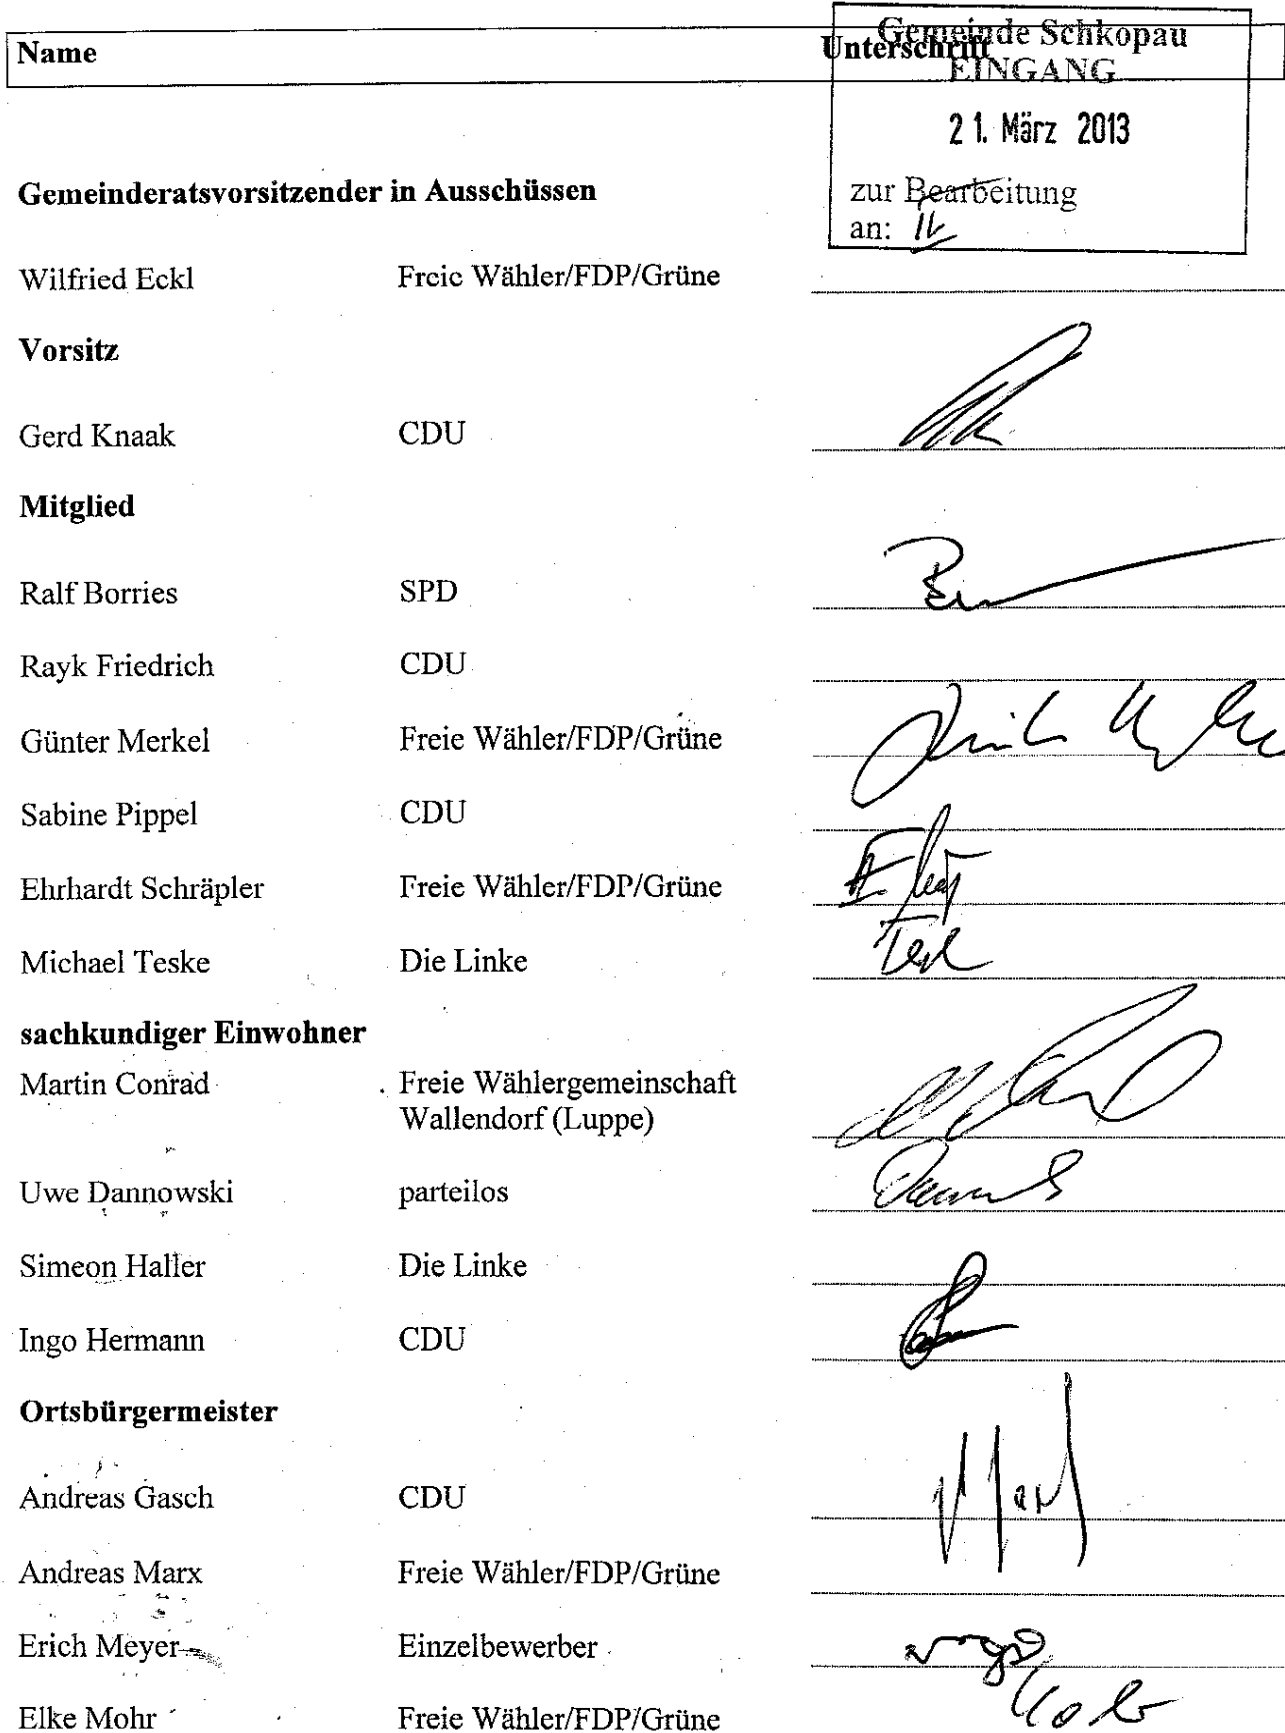 Gemeinde Schkopau
Name Unterschrift
EINGANG
21. März 2013
Gemeinderatsvorsitzender in Ausschüssen
zur Bearbeitung
an:
Wilfried Eckl Freie Wähler/FDP/Grüne
Vorsitz
Gerd Knaak CDU
Mitglied
Ralf Borries SPD
Rayk Friedrich CDU
Günter Merkel Freie Wähler/FDP/Grüne
Sabine Pippel CDU
Ehrhardt Schräpler Freie Wähler/FDP/Grüne
Michael Teske Die Linke
sachkundiger Einwohner
Martin Conrad Freie Wählergemeinschaft
Wallendorf (Luppe)
Uwe Dannowski parteilos
Simeon Haller Die Linke
Ingo Hermann CDU
Ortsbürgermeister
Andreas Gasch CDU
Andreas Marx Freie Wähler/FDP/Grüne
Erich Meyer Einzelbewerber
Elke Mohr Freie Wähler/FDP/Grüne